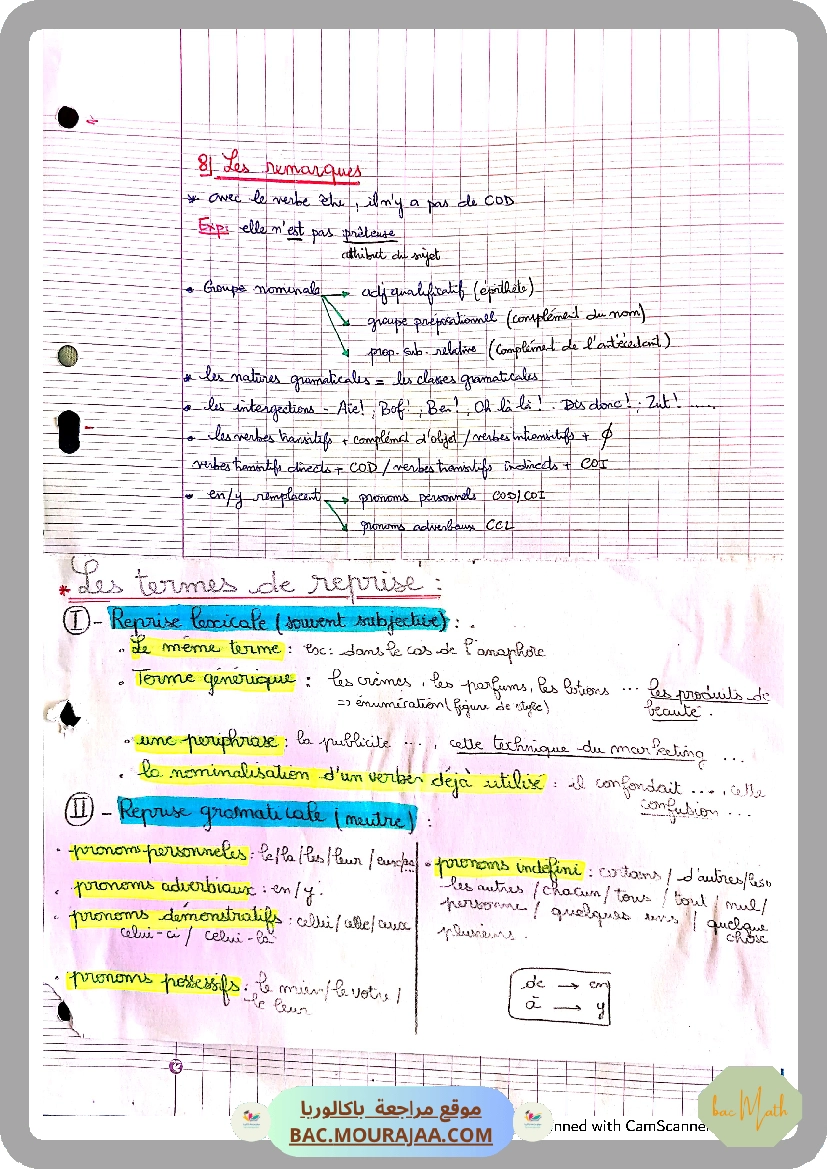 8) Les remarques
* avec le verbe être, il n'y a pas de COD
Exp: elle n'est pas prêteuse
attribut du sujet
• Groupe nominale → adj qualificatif (épithète)
→ groupe prépositionnel (complément du nom)
→ prop. sub. relative (complément de l'antécédant)
* les natures gramaticales = les classes gramaticales
• les intergections - Aïe!, Bof!, Ben!, Oh là là!. Dis donc!; Zut! .....
• les verbes transitifs + complément d'objet / verbes intransitifs + ∅
verbes transitifs directs + COD / verbes transitifs indirects + COI
• en/y remplacent → pronoms personnels COD/COI
→ pronoms adverbaux CCL
* Les termes de reprise :
I - Reprise lexicale (souvent subjective) :
• Le même terme : ex: dans le cas de l'anaphore
• Terme générique : les crèmes, les parfums, les lotions ... les produits de
beauté.
=> énumération (figure de style)
• une periphrase : la publicité ..., cette technique du marketing ...
• la nominalisation d'un verbe déjà utilisé : il confondait ..., cette
confusion ...
II - Reprise gramaticale (neutre) :
• pronoms personneles : le/la/les/leur/eux
• pronoms adverbiaux : en/y.
• pronoms démonstratifs : celui/celle/ceux
celui-ci / celui-là
• pronoms possessifs : le mien/le votre/
le leur
• pronoms indefini : certains / d'autres/
les autres / chacun / tous / tout / nul /
personne / quelques uns / quelque
chose
plusieurs.
de → en
à → y
موقع مراجعة باكالوريا
BAC.MOURAJAA.COM
nned with CamScanner
bac Math